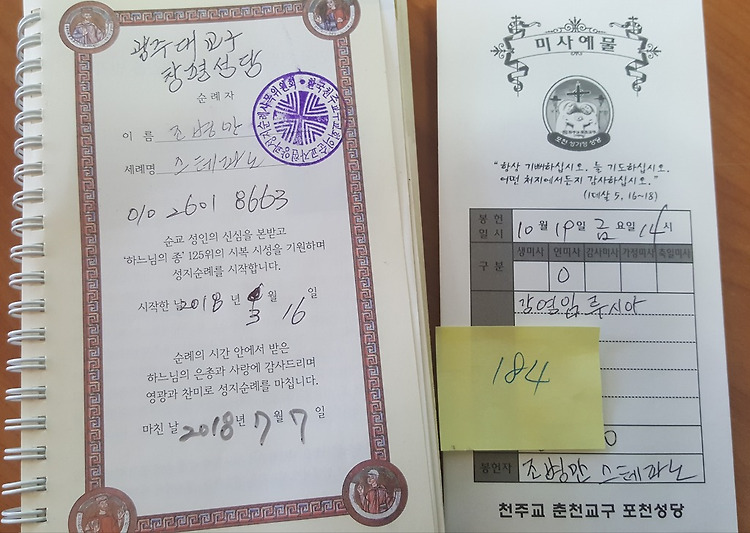 광주대교구
장평성당
순례자
이 름 조병만
세례명 스테파노
010 2601 8663
순교 성인의 신심을 본받고
'하느님의 종' 125위의 시복 시성을 기원하며
성지순례를 시작합니다.
시작한 날 2018 년 3 월 16 일
순례의 시간 안에서 받은
하느님의 은총과 사랑에 감사드리며
영광과 찬미로 성지순례를 마칩니다.
마친 날 2018 년 7 월 7 일
미사예물
포천 성가정 성당
"항상 기뻐하십시오. 늘 기도하십시오.
어떤 처지에서든지 감사하십시오."
(1데살 5, 16~18)
봉헌일시 10 월 19 일 금 요일 14 시
구분 생미사 연미사 감사미사 가정미사 축일미사
0
강열임 루시아
184
0
봉헌자 조병만 스테파노
천주교 춘천교구 포천성당